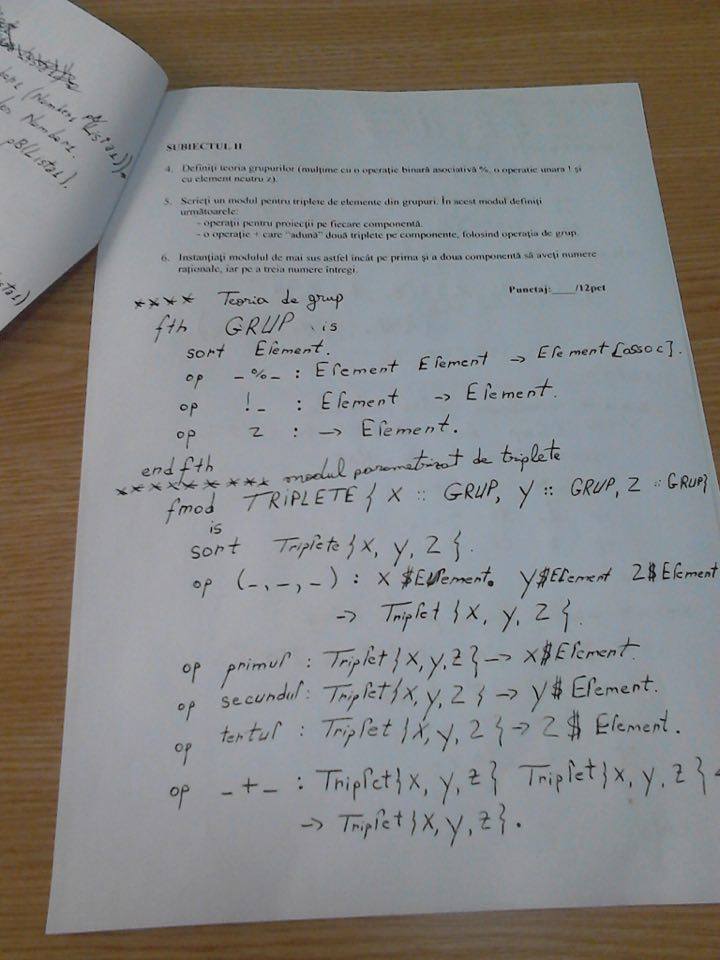 (Numbers
Numbers.
pB(Lista1).
SUBIECTUL II
4. Definiți teoria grupurilor (mulțime cu o operație binară asociativă %, o operatie unara ! și
cu element neutru z).
5. Scrieți un modul pentru triplete de elemente din grupuri. În acest modul definiți
următoarele:
- operații pentru proiecții pe fiecare componentă.
- o operație + care "adună" două triplete pe componente, folosind operația de grup.
6. Instanțiați modulul de mai sus astfel încât pe prima și a doua componentă să aveți numere
raționale, iar pe a treia numere întregi.
Punctaj:____/12pct
**** Teoria de grup
fth GRUP is
sort Element.
op _%_ : Element Element -> Element [assoc].
op !_ : Element -> Element.
op z : -> Element.
endfth
********* modul parametrizat de triplete
fmod TRIPLETE { X :: GRUP, Y :: GRUP, Z :: GRUP}
is
sort Triplete {X, Y, Z}.
op (_,_,_) : X$Element. Y$Element Z$Element
-> Triplet {X, Y, Z}.
op primul : Triplet{X,Y,Z} -> X$Element.
op secundul: Triplet{X, Y, Z} -> Y$Element.
op tertul : Triplet {X, Y, Z} -> Z$ Element.
op _+_ : Triplet{X, Y, Z} Triplet{X, Y, Z}
-> Triplet{X, Y, Z}.